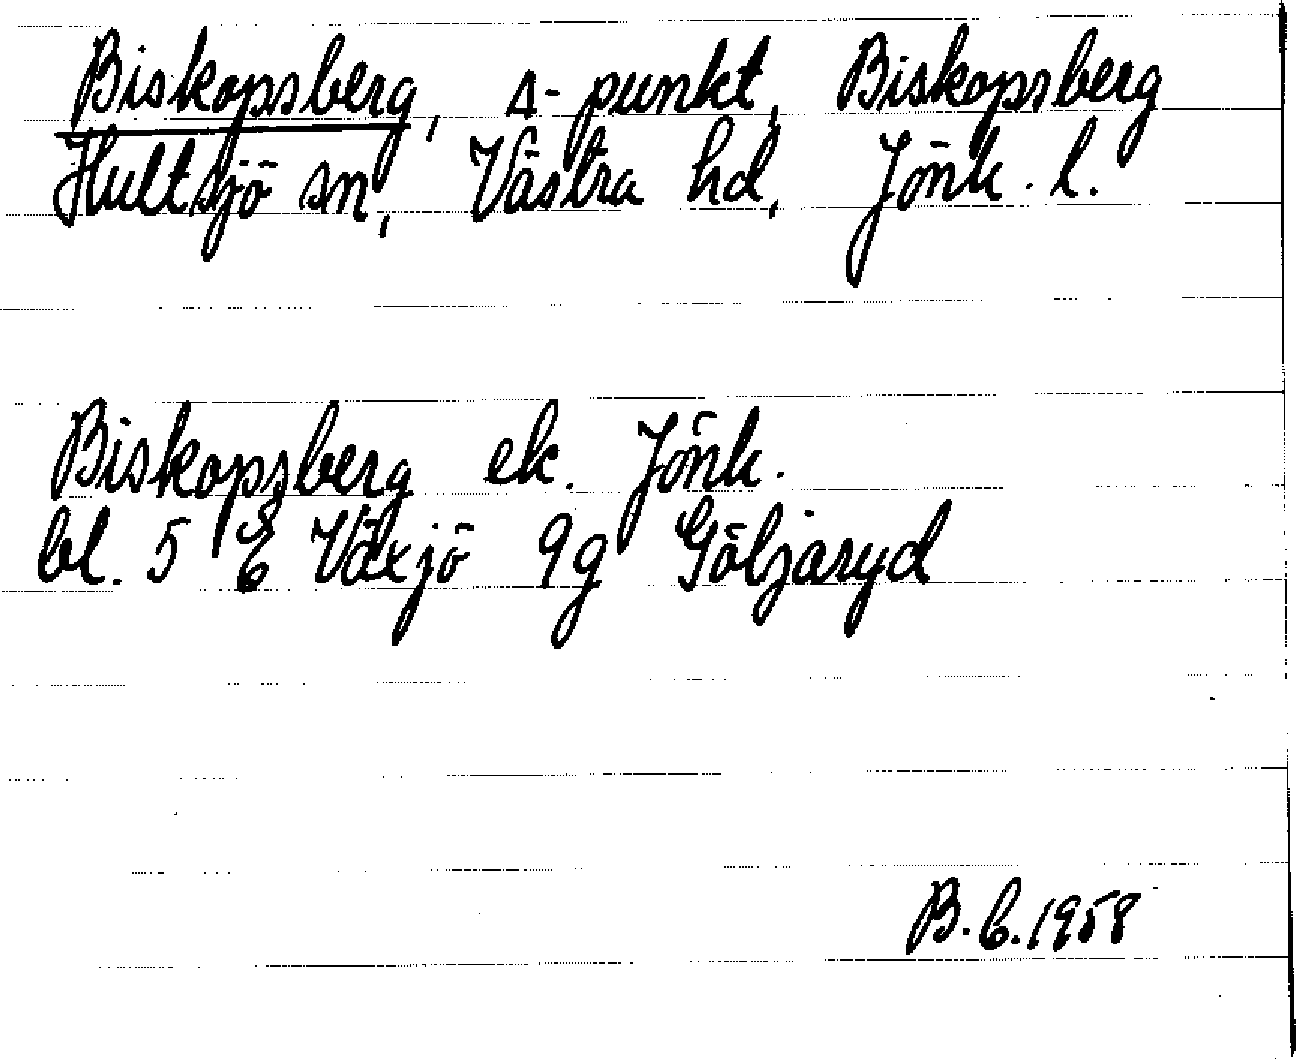 Biskopsberg, Δ-punkt, Biskopsberg
Hultsjö sn, Västra hd, Jönk. l.
Biskopsberg ek. Jönk.
bl. 5 E Växjö 9g Göljaryd
B. b. 1958